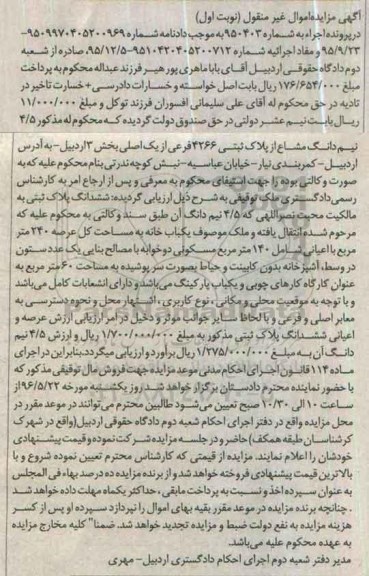 آگهی مزایده اموال غیر منقول (نوبت اول)
در پرونده اجراء به شماره ۹۵۰۴۰۳ به موجب دادنامه شماره ۹۵۰۹۹۷۰۴۰۵۲۰۰۹۶۹-
۹۵/۹/۲۳ و مفاد اجرائیه شماره ۹۵۱۰۴۲۰۴۰۵۲۰۰۷۱۲-۹۵/۱۲/۵ صادره از شعبه
دوم دادگاه حقوقی اردبیل آقای بابا ماهری پور هیر فرزند عبداله محکوم به پرداخت
مبلغ ۱۷۶/۶۵۴/۰۰۰ ریال بابت اصل خواسته و خسارات دادرسی + خسارت تاخیر در
تادیه در حق محکوم له آقای علی سلیمانی افسوران فرزند توکل و مبلغ ۱۱/۰۰۰/۰۰۰
ریال بابت نیم عشر دولتی در حق صندوق دولت گردیده که محکوم له مذکور ۴/۵
نیم دانگ مشاع از پلاک ثبتی ۴۲۶۶ فرعی از یک اصلی بخش ۳ اردبیل- به آدرس
اردبیل- کمربندی نیار- خیابان عباسیه- نبش کوچه ندرتی بنام محکوم علیه که به
صورت وکالتی بوده را جهت استیفای محکوم به معرفی و پس از ارجاع امر به کارشناس
رسمی دادگستری ملک توقیفی به شرح ذیل ارزیابی گردیده: ششدانگ پلاک ثبتی به
مالکیت محبت نصراللهی که ۴/۵ نیم دانگ آن طبق سند وکالتی به محکوم علیه که
مرحوم شده انتقال یافته و ملک موصوف یکباب خانه به مساحت کل عرصه ۲۴۰ متر
مربع با اعیانی شامل ۱۴۰ متر مربع مسکونی دو خوابه با مصالح بنایی یک عدد ستون
در وسط، آشپزخانه بدون کابینت و حیاط بصورت سرپوشیده به مساحت ۶۰ متر مربع به
عنوان کارگاه کارهای چوبی و یکباب پارکینگ می‌باشد و دارای انشعابات کامل می‌باشد
و با توجه به موقعیت محلی و مکانی، نوع کاربری، اشتهار محل و نحوه دسترسی به
معابر اصلی و فرعی و با لحاظ سایر جوانب موثر و دخیل در امر ارزیابی ارزش عرصه و
اعیانی ششدانگ پلاک ثبتی مذکور به مبلغ ۱/۷۰۰/۰۰۰/۰۰۰ ریال و ارزش ۴/۵ نیم
دانگ آن به مبلغ ۱/۲۷۵/۰۰۰/۰۰۰ ریال برآورد و ارزیابی میگردد. بنابراین در اجرای
ماده ۱۱۴ قانون اجرای احکام مدنی موعد مزایده جهت فروش مال توقیفی مذکور که
با حضور نماینده محترم دادستان برگزار خواهد شد. روز یکشنبه مورخه ۹۶/۵/۲۲ از
ساعت ۱۰ الی ۱۰/۳۰ صبح تعیین می‌شود طالبین محترم می‌توانند در موعد مقرر در
محل مزایده واقع در دفتر اجرای احکام شعبه دوم دادگاه حقوقی اردبیل (واقع در شهرک
کارشناسان طبقه همکف) حاضر و در جلسه مزایده شرکت نموده و قیمت پیشنهادی
خودشان را اعلام نمایند. مزایده از قیمتی که کارشناس محترم تعیین نموده شروع و با
بالاترین قیمت پیشنهادی فروخته خواهد شد و از برنده مزایده ده درصد بهاء فی المجلس
به عنوان سپرده اخذ و نسبت به پرداخت مابقی، حداکثر یکماه مهلت داده خواهد شد
. چنانچه برنده مزایده در موعد مقرر بقیه بهای اموال را نپردازد سپرده او پس از کسر
هزینه مزایده به نفع دولت ضبط و مزایده تجدید خواهد شد. ضمنا" کلیه مخارج مزایده
به عهده محکوم علیه می‌باشد.
مدیر دفتر شعبه دوم اجرای احکام دادگستری اردبیل- مهری